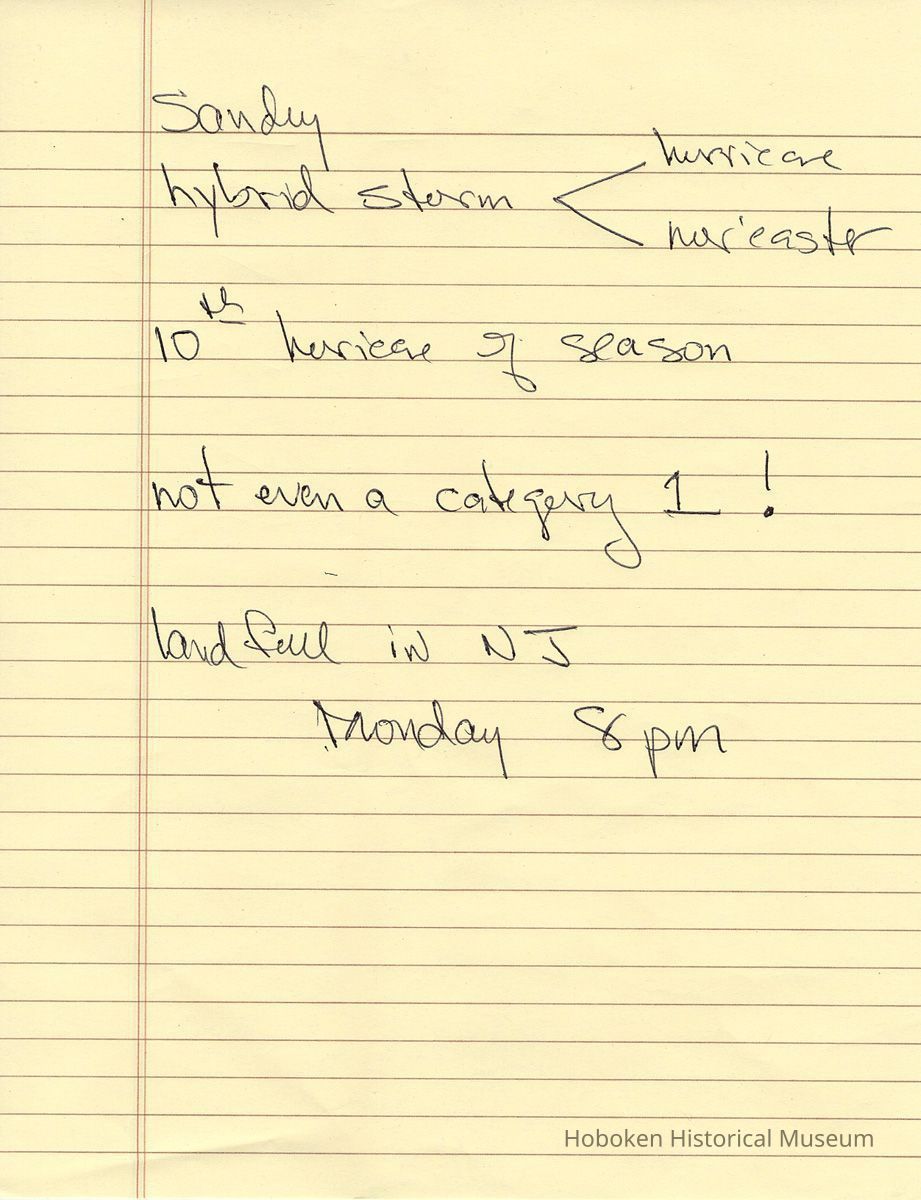 Sandy
hybrid storm < hurricane
nor'easter
10th hurricane of season
not even a category 1 !
landfall in NJ
Monday 8 pm
Hoboken Historical Museum